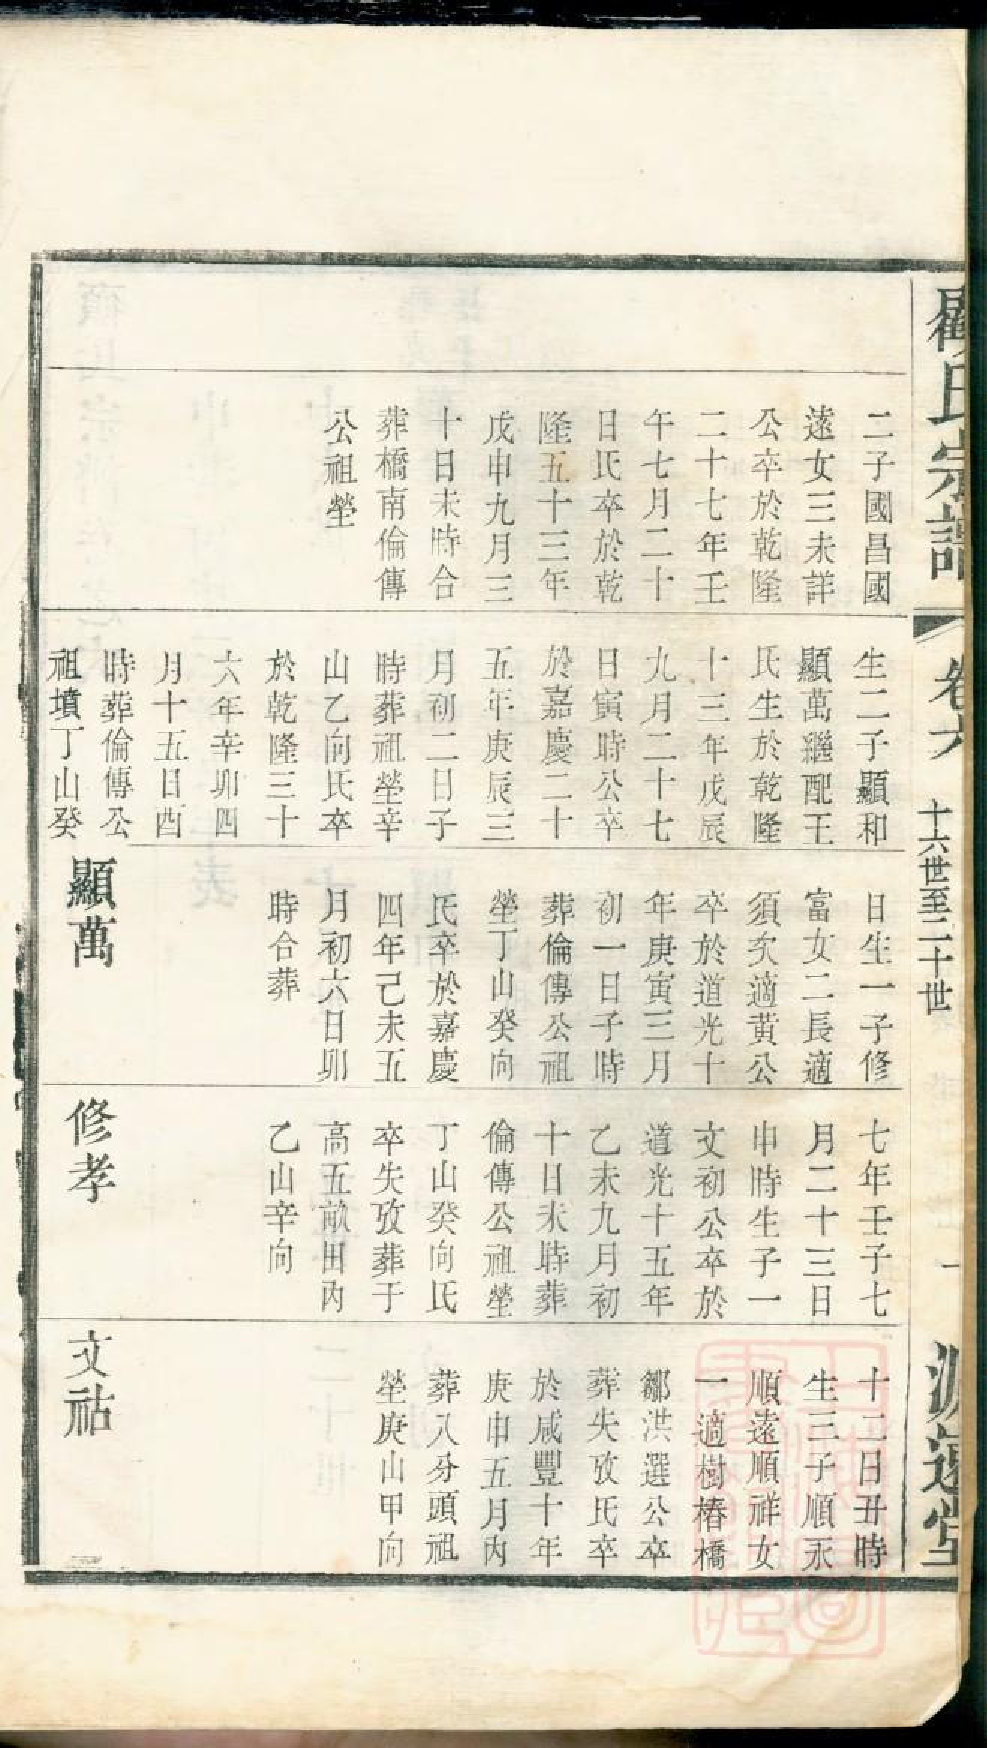 顧氏宗譜
卷六
十六世至二十世
一
源遠堂
二子國昌國
遠女三未詳
公卒於乾隆
二十七年壬
午七月二十
日氏卒於乾
隆五十三年
戊申九月三
十日未時合
葬橋南倫傳
公祖塋
生二子顯和
顯萬繼配王
氏生於乾隆
十三年戊辰
九月二十七
日寅時公卒
於嘉慶二十
五年庚辰三
月初二日子
時葬祖塋辛
山乙向氏卒
於乾隆三十
六年辛卯四
月十五日酉
時葬倫傳公
祖墳丁山癸
日生一子修
富女二長適
須次適黄公
卒於道光十
年庚寅三月
初一日子時
葬倫傳公祖
塋丁山癸向
氏卒於嘉慶
四年己未五
月初六日卯
時合葬
顯萬
七年壬子七
月二十三日
申時生子一
文初公卒於
道光十五年
乙未九月初
十日未時葬
倫傳公祖塋
丁山癸向氏
卒失攷葬于
高五畝田內
乙山辛向
修孝
十二日丑時
生三子順永
順遠順祥女
一適樹椿橋
鄒洪選公卒
葬失攷氏卒
於咸豐十年
庚申五月內
葬入分頭祖
塋庚山甲向
文祜